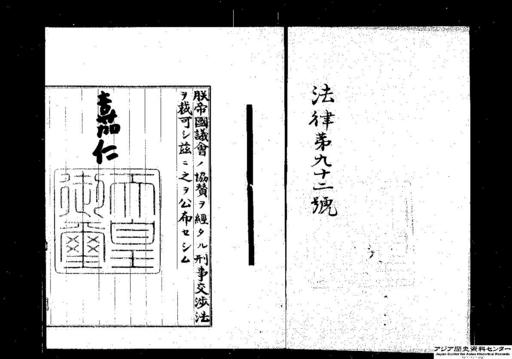 法律第九十二號
朕帝國議會ノ協贊ヲ經タル刑事交渉法
ヲ裁可シ茲ニ之ヲ公布セシム
嘉仁
天皇
御璽
アジア歴史資料センター
Japan Center for Asian Historical Records